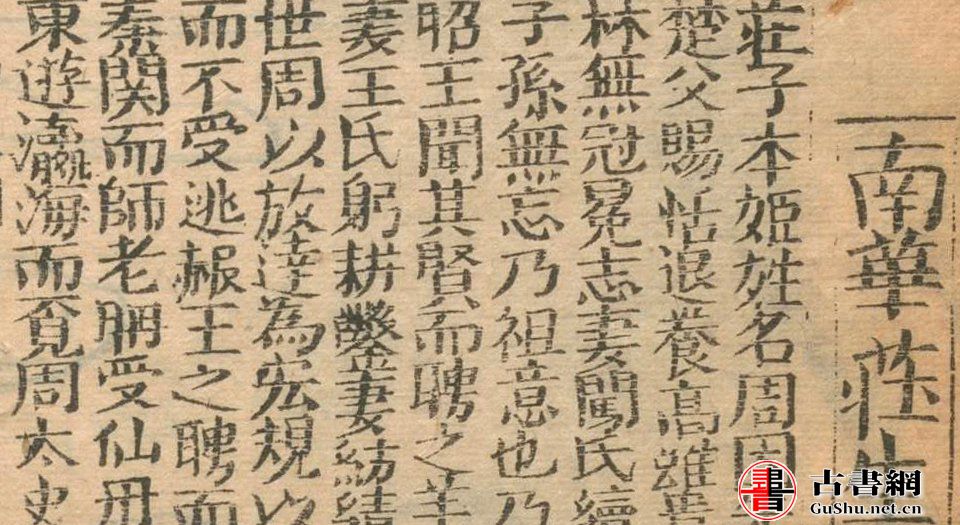 南華莊生
莊子本姬姓名周因
楚父賜恬退養高雖貴
林無冠冕志妻闖氏續
子孫無忘乃祖意也乃
昭王聞其賢而聘之羊
妻王氏躬耕鑿妻紡績
世周以放達為宏規以
而不受逃赧王之聘而
秦関而師老聃受仙毋
東遊瀛海而覔周太史
古書網
GuShu.net.cn